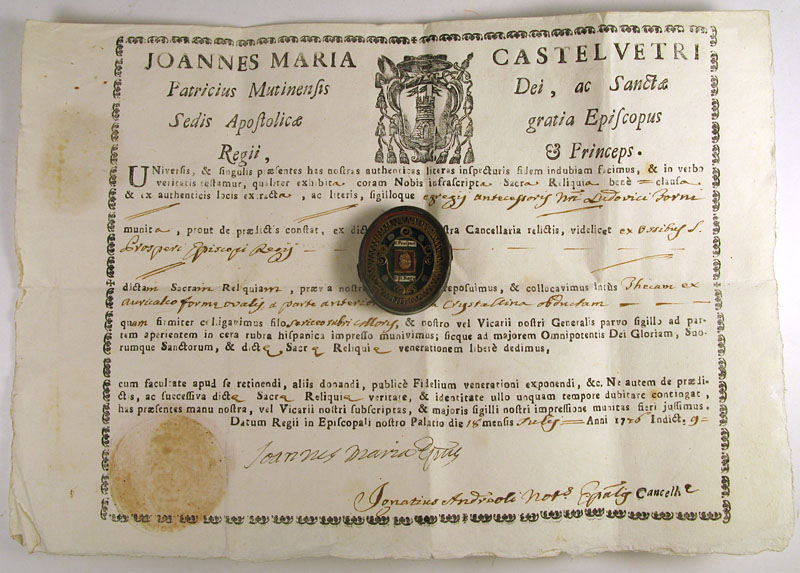 JOANNES MARIA CASTELVETRI
Patricius Mutinensis Dei, ac Sanctæ
Sedis Apostolicæ gratia Episcopus
Regii, & Princeps.
UNiversis, & singulis præsentes has nostras authenticas literas inspecturis fidem indubiam facimus, & in verbo
veritatis testamur, qualiter exhibita coram Nobis infrascripta Sacra Reliquia bene clausa
& ex authenticis locis extracta, ac literis, sigilloque egregij antecessoris Nri Ludovici Forni
munita, prout de prædictis constat, ex stra Cancellaria relictis, videlicet ex ossibus S.
Prosperi Episcopi Regij
dictam Sacram Reliquiam, prævia nostr reposuimus, & collocavimus intus Thecam ex
auricalco forme ovalis a parte anterio Crystallina obductam
quam firmiter colligavimus filo sericeo rubri coloris, & nostro vel Vicarii nostri Generalis parvo sigillo ad par-
tem aperientem in cera rubra hispanica impresso munivimus; sicque ad majorem Omnipotentis Dei Gloriam, Suo-
rumque Sanctorum, & dictę Sacrę Reliquię venerationem liberè dedimus,
cum facultate apud se retinendi, aliis donandi, publicè Fidelium venerationi exponendi, &c. Ne autem de prædi-
ctis, ac successiva dictę Sacrę Reliquię veritate, & identitate ullo unquam tempore dubitare contingat,
has præsentes manu nostra, vel Vicarii nostri subscriptas, & majoris sigilli nostri impressione munitas fieri jussimus.
Datum Regii in Episcopali nostro Palatio die 18 mensis Julij Anni 1726 Indict. 9
Joannes Maria Epus
Ignatius Andreoli Nots Epalis Cancellę